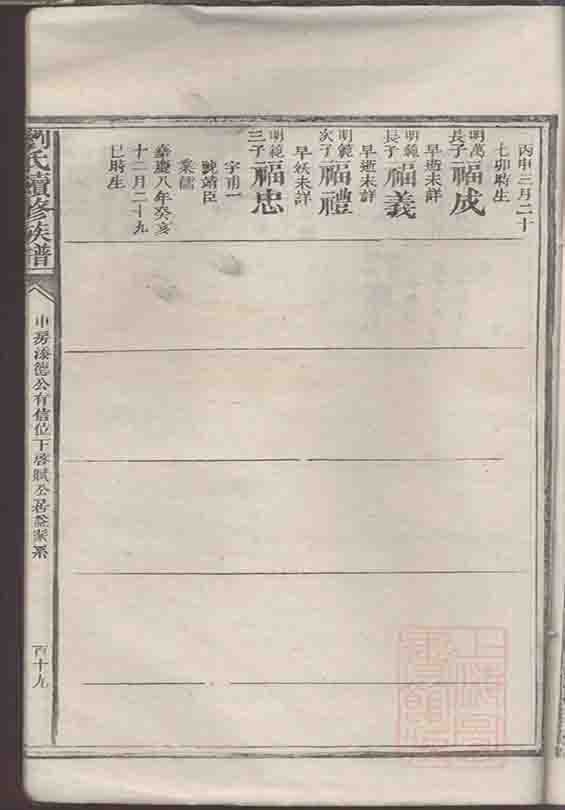 丙申三月二十
七卯時生
明萬
長子
福成
早逝未詳
明鏡
長子
福義
早逝未詳
明鏡
次子
福禮
早妖未詳
明鏡
三子
福忠
字甫一
號靖臣
業儒
嘉慶八年癸亥
十二月二十九
巳時生
劉氏續修族譜
中房漆德公有信位下啓賦公
系
百十九
上海圖
書館藏